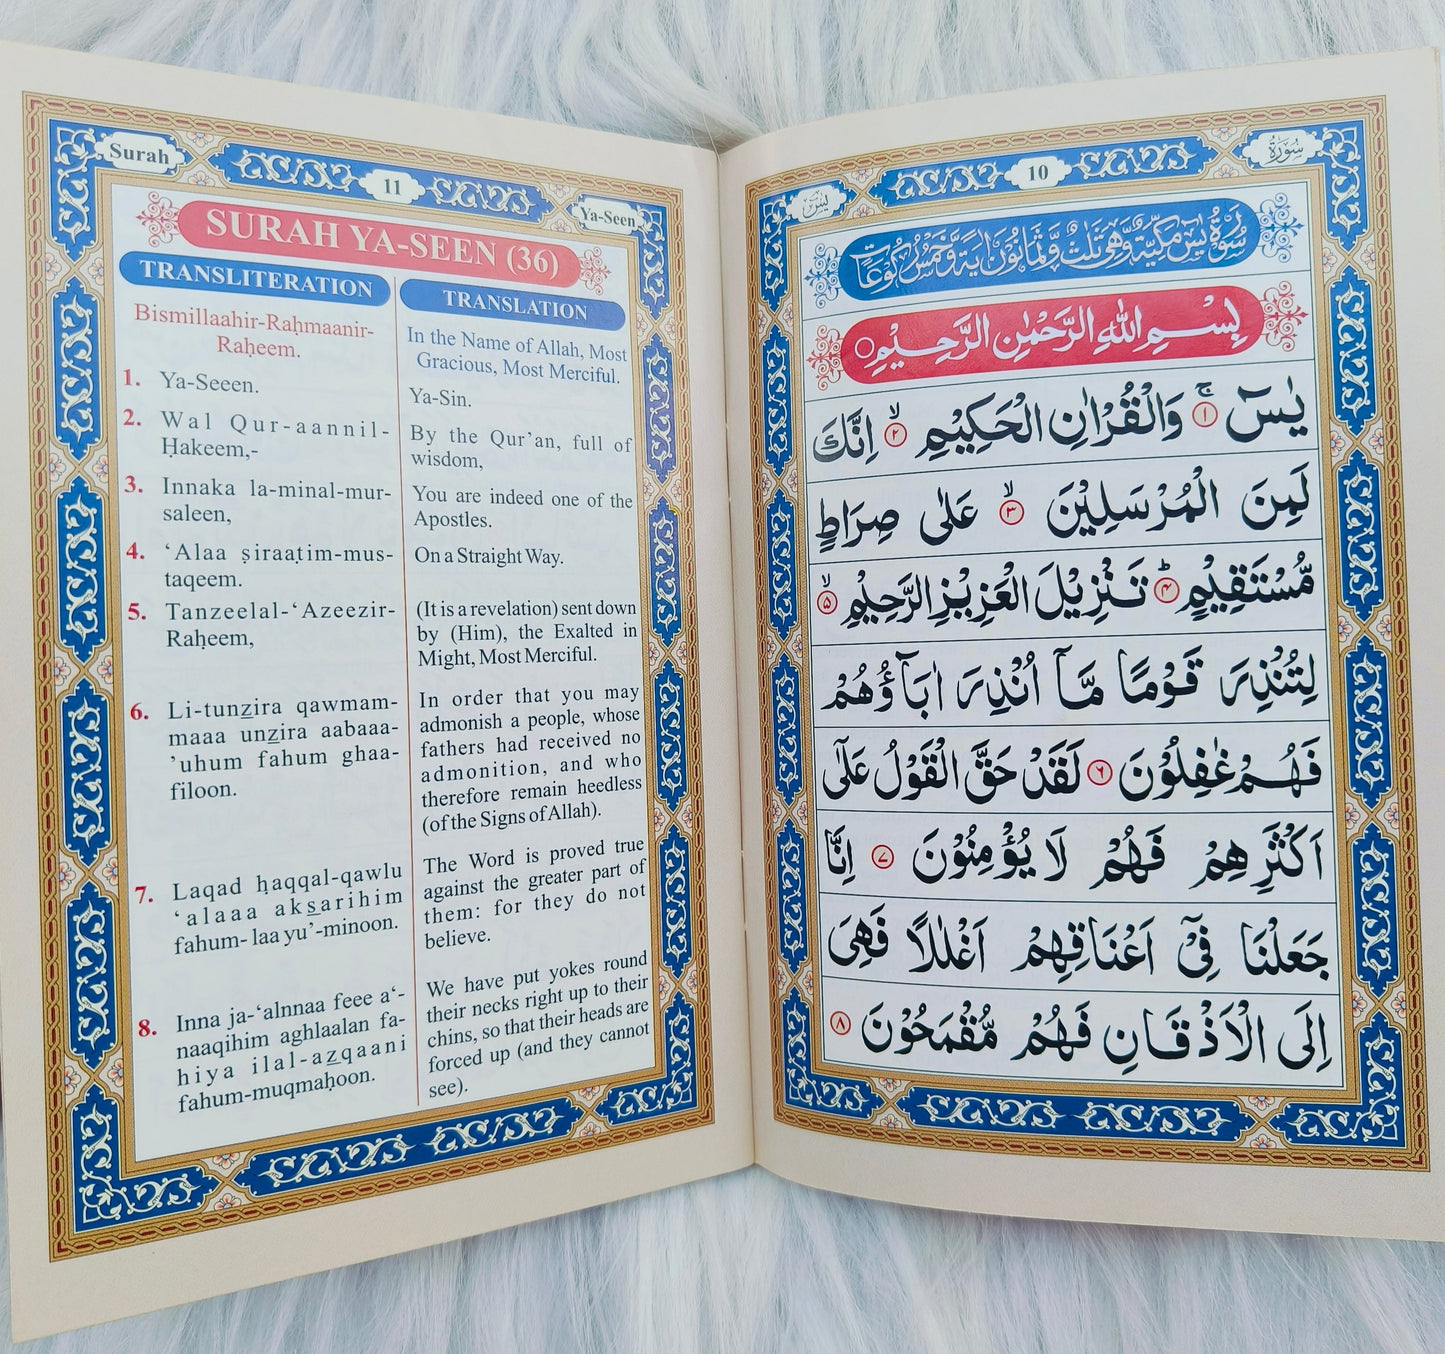 Surah
11
Ya-Seen
SURAH YA-SEEN (36)
TRANSLITERATION
Bismillaahir-Raḥmaanir-
Raḥeem.
1. Ya-Seeen.
2. Wal Qur-aannil-
Ḥakeem,-
3. Innaka la-minal-mur-
saleen,
4. ‘Alaa ṣiraaṭim-mus-
taqeem.
5. Tanzeelal-‘Azeezir-
Raḥeem,
6. Li-tunẕira qawmam-
maaa unẕira aabaaa-
’uhum fahum ghaa-
filoon.
7. Laqad ḥaqqal-qawlu
‘alaaa aks̱arihim
fahum- laa yu’-minoon.
8. Inna ja-‘alnnaa feee a‘-
naaqihim aghlaalan fa-
hiya ilal-aẕqaani
fahum-muqmaḥoon.
TRANSLATION
In the Name of Allah, Most
Gracious, Most Merciful.
Ya-Sin.
By the Qur’an, full of
wisdom,
You are indeed one of the
Apostles.
On a Straight Way.
(It is a revelation) sent down
by (Him), the Exalted in
Might, Most Merciful.
In order that you may
admonish a people, whose
fathers had received no
admonition, and who
therefore remain heedless
(of the Signs of Allah).
The Word is proved true
against the greater part of
them: for they do not
believe.
We have put yokes round
their necks right up to their
chins, so that their heads are
forced up (and they cannot
see).
سُورَة
10
يٰسٓ
سُوْرَةُ يٰسٓ مَكِّيَّةٌ وَّهِىَ ثَلٰثٌ وَّثَمَانُوْنَ اٰيَةً وَّخَمْسُ رُكُوْعَاتٍ
بِسْمِ اللّٰهِ الرَّحْمٰنِ الرَّحِيْمِ
يٰسٓ ۚ ۝١ وَالْقُرْاٰنِ الْحَكِيْمِ ۙ ۝٢ اِنَّكَ
لَمِنَ الْمُرْسَلِيْنَ ۙ ۝٣ عَلٰى صِرَاطٍ
مُّسْتَقِيْمٍ ؕ ۝۴ تَنْزِيْلَ الْعَزِيْزِ الرَّحِيْمِ ۙ ۝۵
لِتُنْذِرَ قَوْمًا مَّآ اُنْذِرَ اٰبَآؤُهُمْ
فَهُمْ غٰفِلُوْنَ ۝۶ لَقَدْ حَقَّ الْقَوْلُ عَلٰٓى
اَكْثَرِهِمْ فَهُمْ لَا يُؤْمِنُوْنَ ۝۷ اِنَّا
جَعَلْنَا فِىْٓ اَعْنَاقِهِمْ اَغْلٰلًا فَهِىَ
اِلَى الْاَذْقَانِ فَهُمْ مُّقْمَحُوْنَ ۝۸